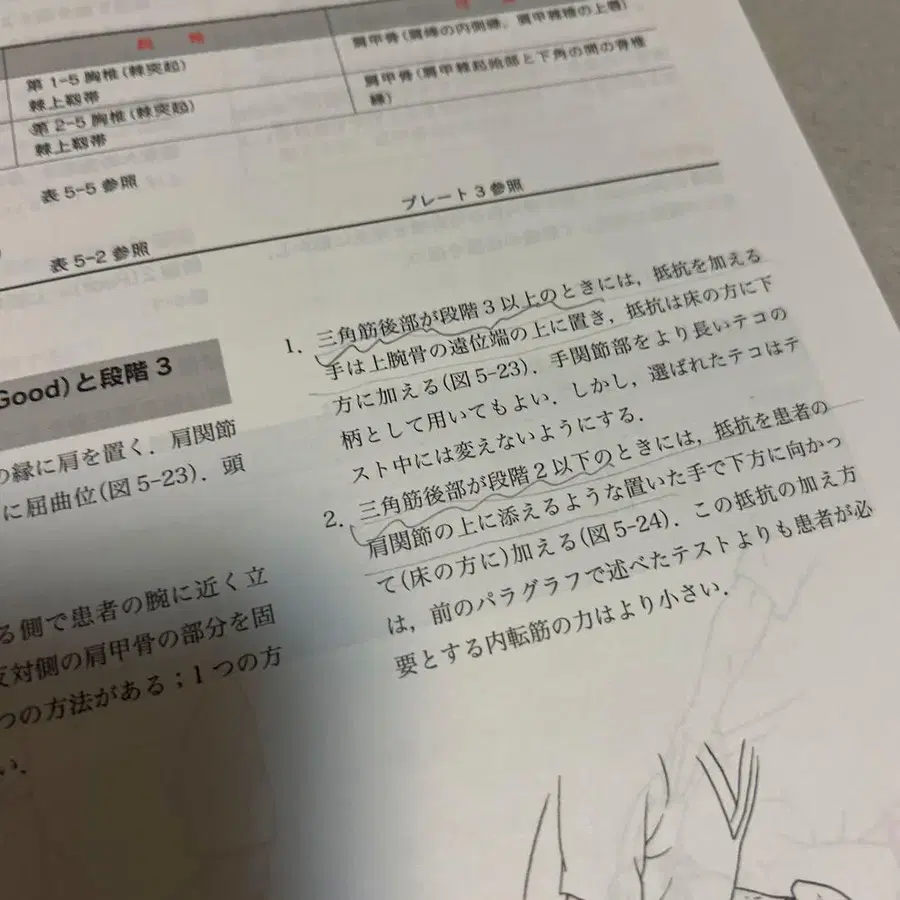 起始
第 1-5 胸椎(棘突起)
棘上靱帯
第 2-5 胸椎(棘突起)
棘上靱帯
肩甲骨(肩峰の内側縁，肩甲棘稜の上唇)
肩甲骨(肩甲棘起始部と下角の間の脊椎
縁)
表 5-5 参照
プレート 3 参照
表 5-2 参照
Good)と段階 3
の縁に肩を置く．肩関節
に屈曲位(図 5-23)．頭
る側で患者の腕に近く立
反対側の肩甲骨の部分を固
つの方法がある；1 つの方
い．
1. 三角筋後部が段階 3 以上のときには，抵抗を加える
手は上腕骨の遠位端の上に置き，抵抗は床の方に下
方に加える(図 5-23)．手関節部をより長いテコの
柄として用いてもよい．しかし，選ばれたテコはテ
スト中には変えないようにする．
2. 三角筋後部が段階 2 以下のときには，抵抗を患者の
肩関節の上に添えるような置いた手で下方に向かっ
て(床の方に)加える(図 5-24)．この抵抗の加え方
は，前のパラグラフで述べたテストよりも患者が必
要とする内転筋の力はより小さい．